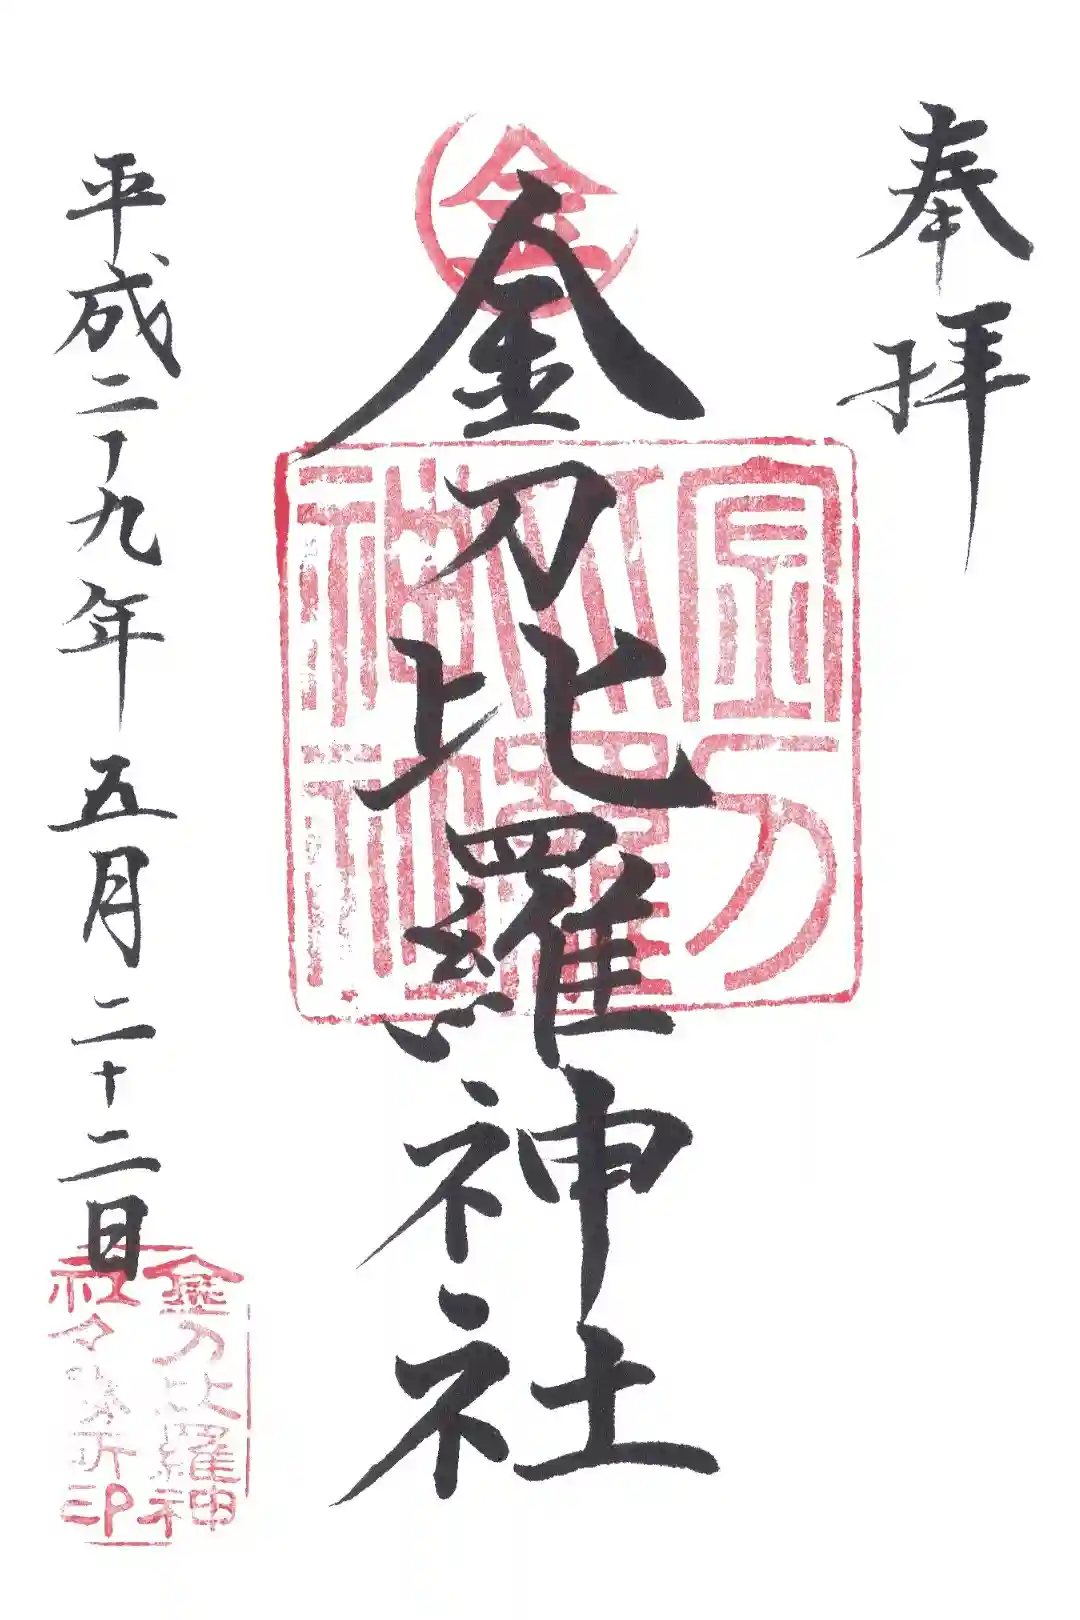 奉拝
金
金刀比羅神社
金刀比羅神社
平成二十九年五月二十二日
金刀比羅神
社々務所印